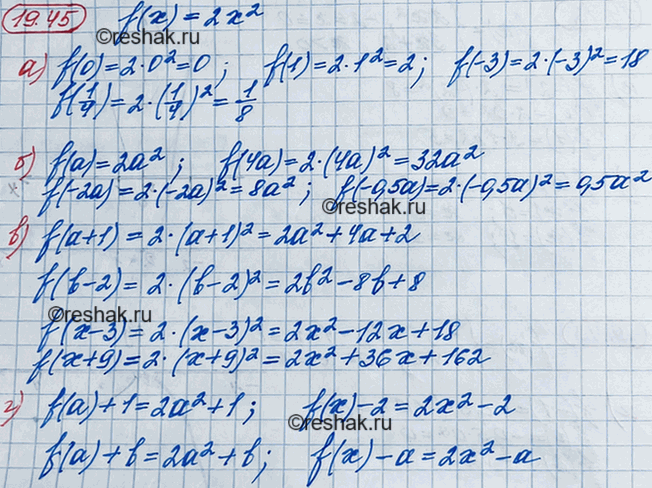 19.45 f(x) = 2x²
©reshak.ru
а) f(0)=2·0²=0; f(1)=2·1²=2; f(-3)=2·(-3)²=18
f(1/4)=2·(1/4)²=1/8
©reshak.ru
б) f(a)=2a²; f(4a)=2·(4a)²=32a²
f(-2a)=2·(-2a)²=8a²; f(-0,5a)=2·(-0,5a)²=0,5a²
©reshak.ru
в) f(a+1)=2·(a+1)²=2a²+4a+2
f(b-2)=2·(b-2)²=2b²-8b+8
©reshak.ru
f(x-3)=2·(x-3)²=2x²-12x+18
f(x+9)=2·(x+9)²=2x²+36x+162
г) f(a)+1=2a²+1; f(x)-2=2x²-2
f(a)+b=2a²+b; f(x)-a=2x²-a
©reshak.ru